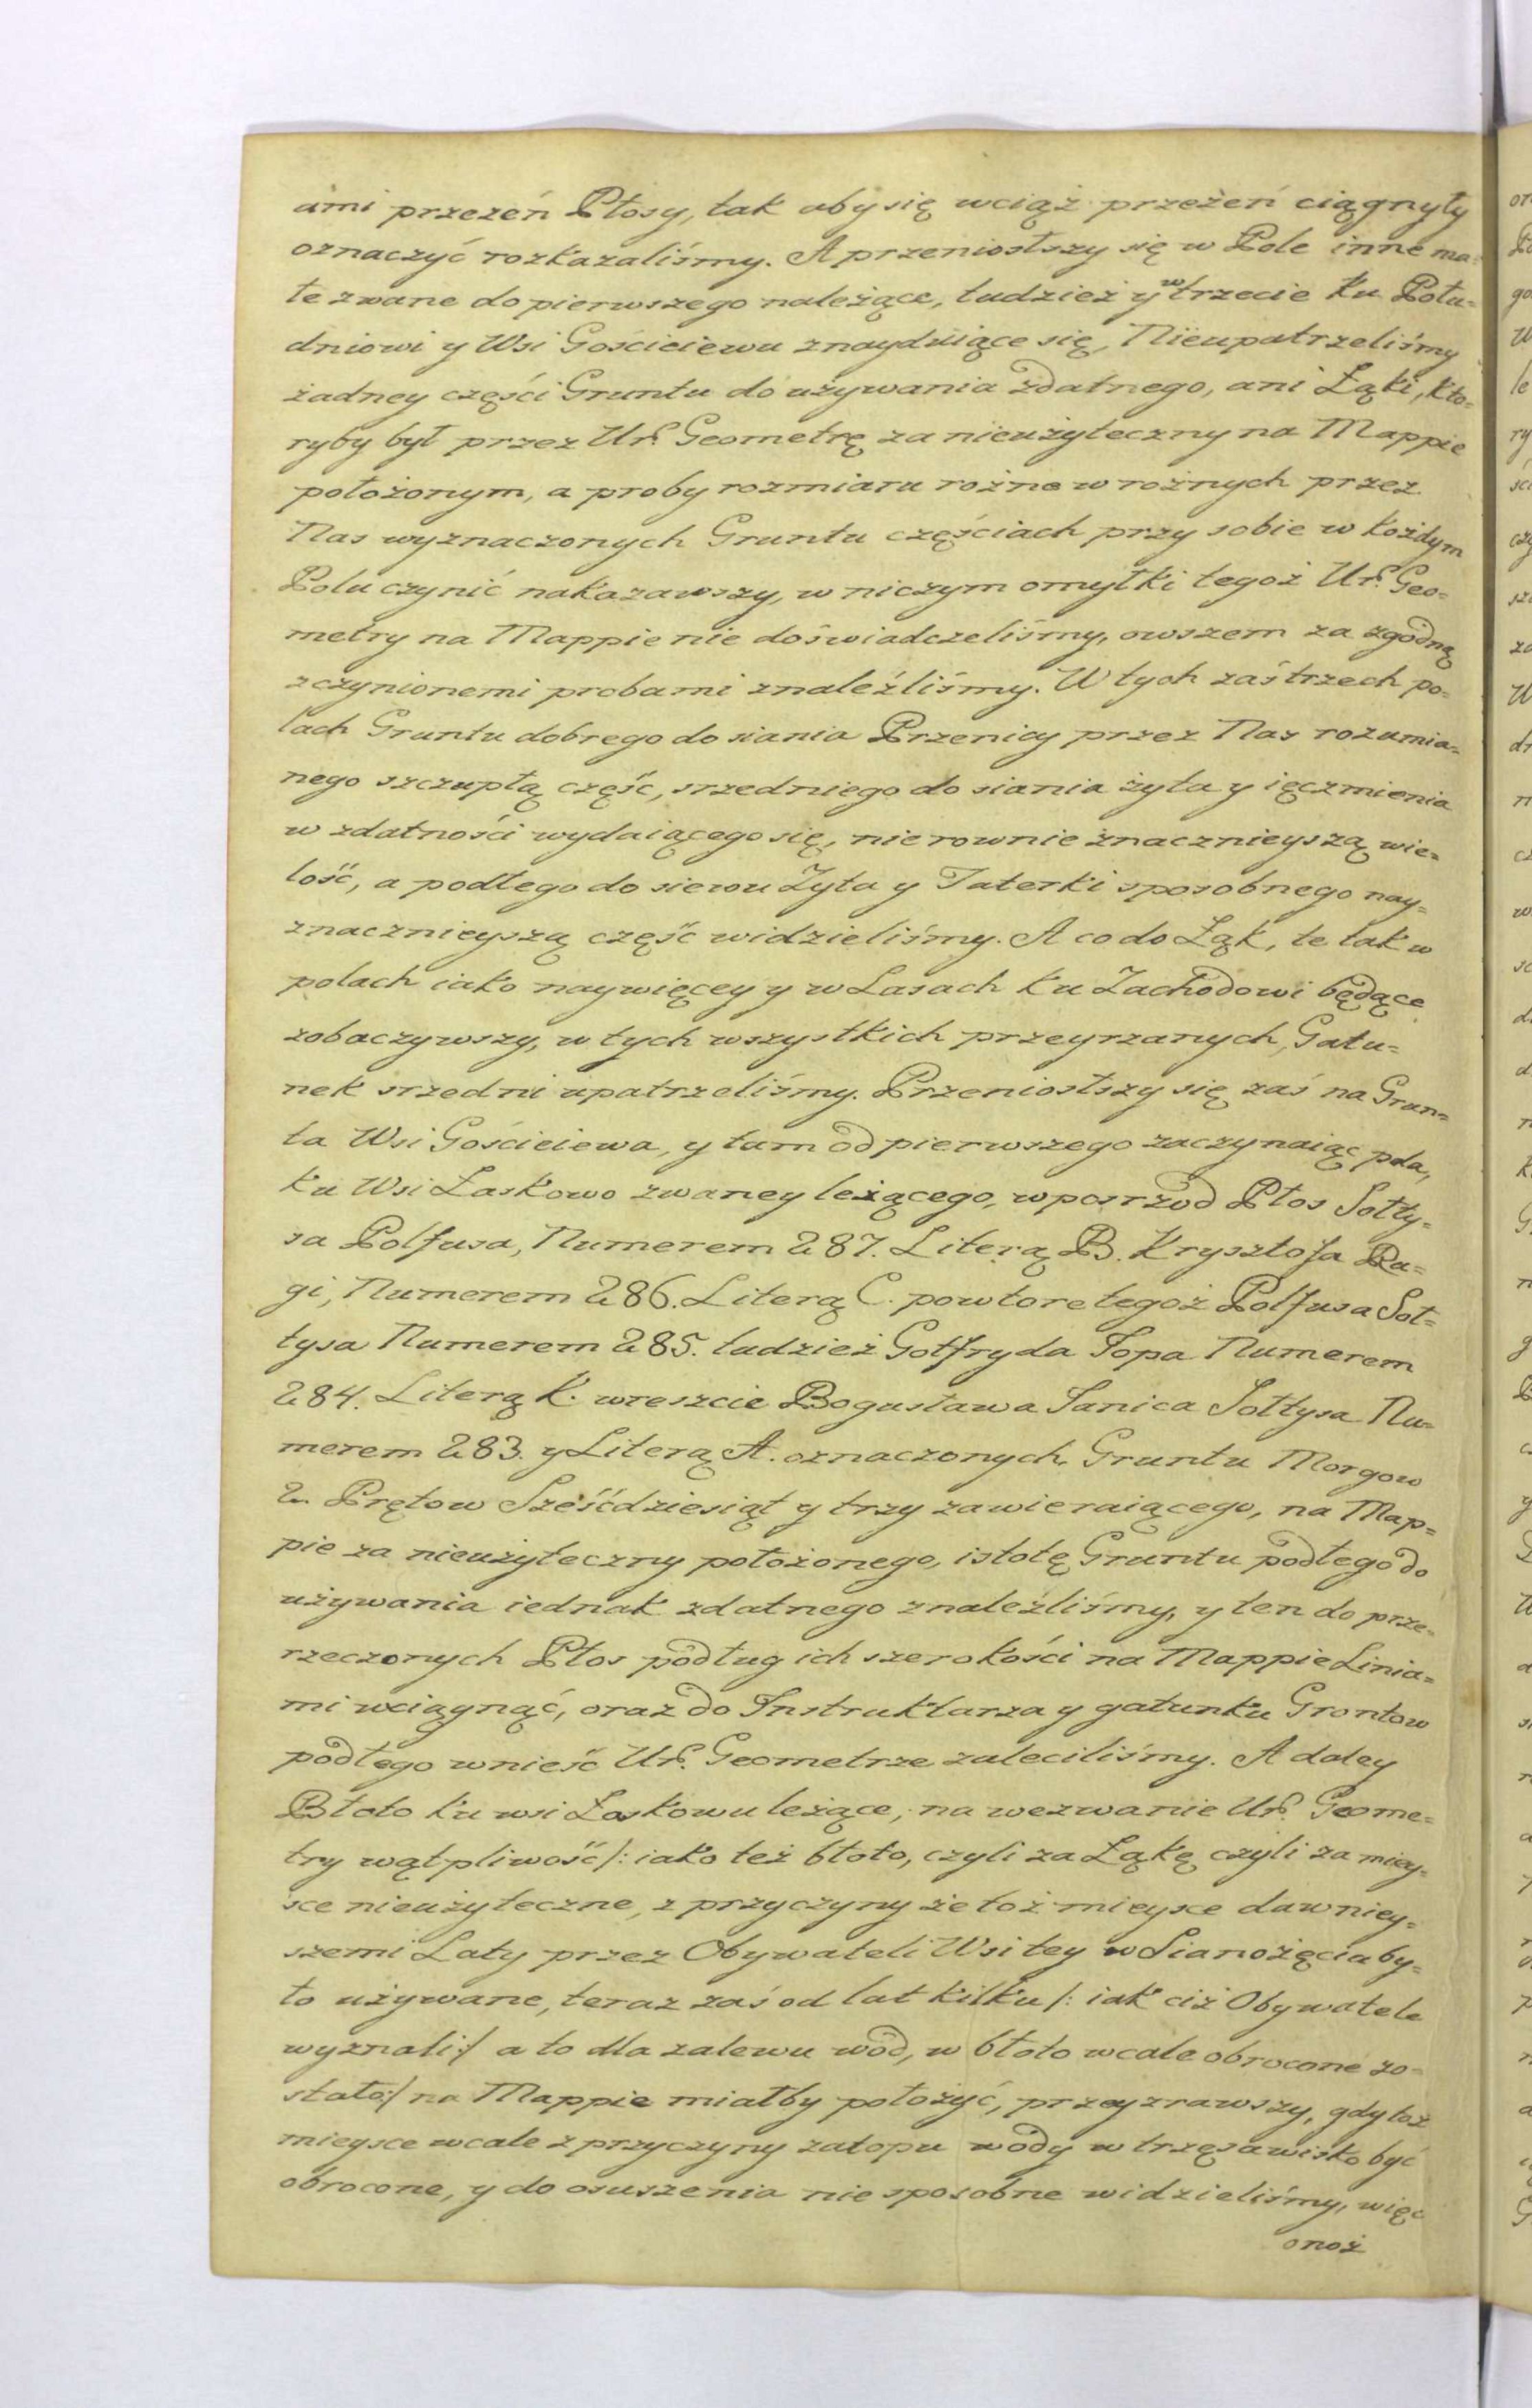 ami przezeń Płosy, tak aby się wciąż przeżeń ciągnyły
oznaczyć rozkazaliśmy. A przeniosłszy się w Pole inne ma=
łe zwane do pierwszego należące, tudzież y w trzecie ku Połu=
dniowi y Wsi Gościeiewu znayduiące się, Nieupatrzeliśmy
żadney części Gruntu do używania zdatnego, ani Łąki, kto=
ryby był przez Ur. Geometrę za nieużyteczny na Mappie
położonym, a proby rozmiaru rożne w rożnych przez
Nas wyznaczonych Gruntu częściach przy sobie w każdym
Polu czynić nakazawszy, w niczym omyłki tegoż Ur. Geo=
metry na Mappie nie doświadczeliśmy, owszem za zgodną
z czynionemi probami znaleźliśmy. W tych zaś trzech po=
lach Gruntu dobrego do siania Przenicy przez Nas rozumia=
nego szczupłą część, srzedniego do siania żyta y ięczmienia
w zdatności wydaiącego się, nierownie znacznieyszą wie=
lość, a podłego do siewu Zyta y Taterki sposobnego nay=
znacznieyszą część widzieliśmy. A co do Łąk, te tak w
polach iako naywięcey y w Lasach ku Zachodowi będące
zobaczywszy, w tych wszystkich przeyrzanych, Gatu=
nek srzedni upatrzeliśmy. Przeniosłszy się zaś na Grun=
ta Wsi Gościeiewa, y tam od pierwszego zaczynaiąc pola,
ku Wsi Łaskowo zwaney leżącego, wposrzod Płos Sołty=
sa Polfusa, Numerem 287. Literą B. Krysztofa Ra=
gi, Numerem 286. Literą C. powtore tegoż Polfusa Soł=
tysa Numerem 285. tudzież Gotfryda Topa Numerem
284. Literą K. wreszcie Bogusława Janica Sołtysa Nu=
merem 283. y Literą A. oznaczonych, Gruntu Morgow
2. Prętow Sześćdziesiąt y trzy zawieraiącego, na Map=
pie za nieużyteczny położonego, istotę Gruntu podłego do
używania iednak zdatnego znaleźliśmy, y ten do prze=
rzeczonych Płos podług ich szerokości na Mappie Linia=
mi wciągnąć, oraz do Instruktarza y gatunku Grontow
podłego wnieść Ur. Geometrze zaleciliśmy. A daley
Błoto ku wsi Łaskowu leżące, na wezwanie Ur. Geome=
try wątpliwość/: iako też błoto, czyli za Łąkę czyli za miey=
sce nieużyteczne, z przyczyny że toż mieysce dawniey=
szemi Laty przez Obywateli Wsi tey w Sianożęcia by=
ło używane, teraz zaś od lat kilku/: iak ciż Obywatele
wyznali:/ a to dla zalewu wód, w błoto wcale obrocone zo=
stało:/ na Mappie miałby położyć, przeyzrawszy, gdy toż
mieysce wcale z przyczyny zatopu wody w trzęsawisko być
obrocone, y do osuszenia nie sposobne widzieliśmy, więc
onoż